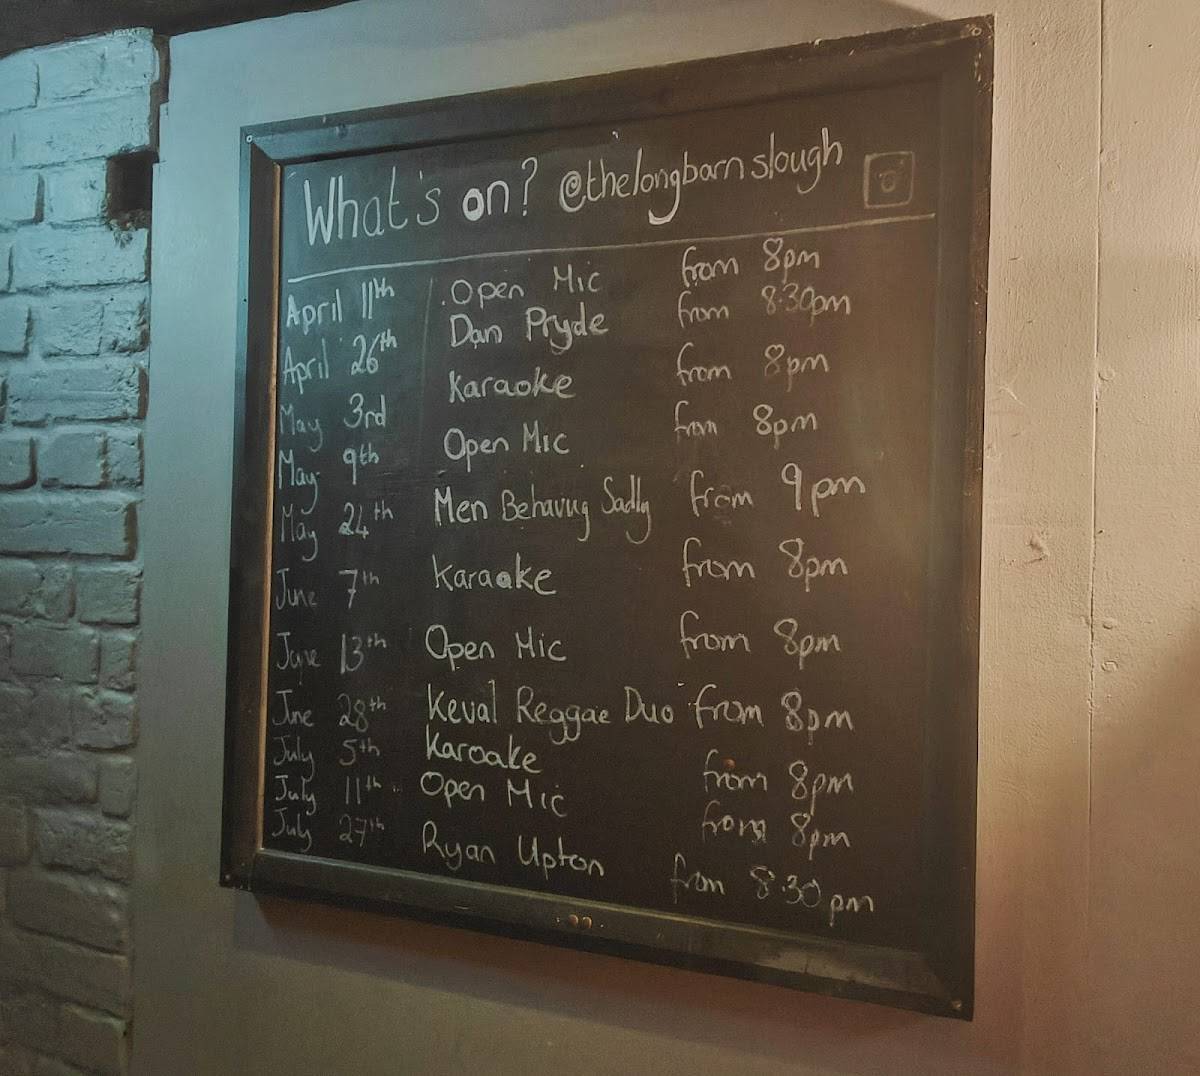 What's on? @thelongbarnslough
April 11th Open Mic from 8pm
April 26th Dan Pryde from 8.30pm
May 3rd Karaoke from 8pm
May 9th Open Mic from 8pm
May 24th Men Behaving Sadly from 9pm
June 7th Karaoke from 8pm
June 13th Open Mic from 8pm
June 28th Keval Reggae Duo from 8pm
July 5th Karoake from 8pm
July 11th Open Mic from 8pm
July 27th Ryan Upton from 8.30pm